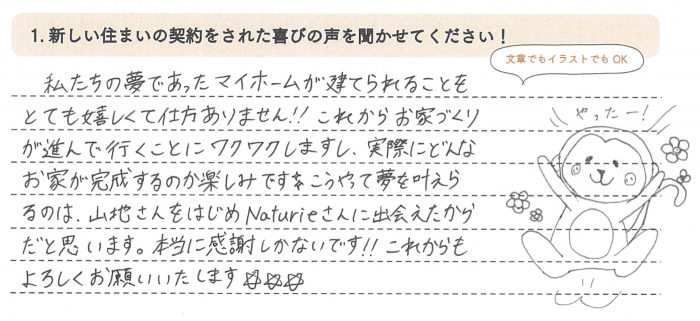 1. 新しい住まいの契約をされた喜びの声を聞かせてください！
文章でもイラストでもOK
私たちの夢であったマイホームが建てられることを
とても嬉しくて仕方ありません!! これからお家づくり
が進んで行くことにワクワクしますし、実際にどんな
お家が完成するのか楽しみです☆こうやって夢を叶えら
るのは、山地さんをはじめNaturieさんに出会えたから
だと思います。本当に感謝しかないです!! これからも
よろしくお願いいたします
やったー！